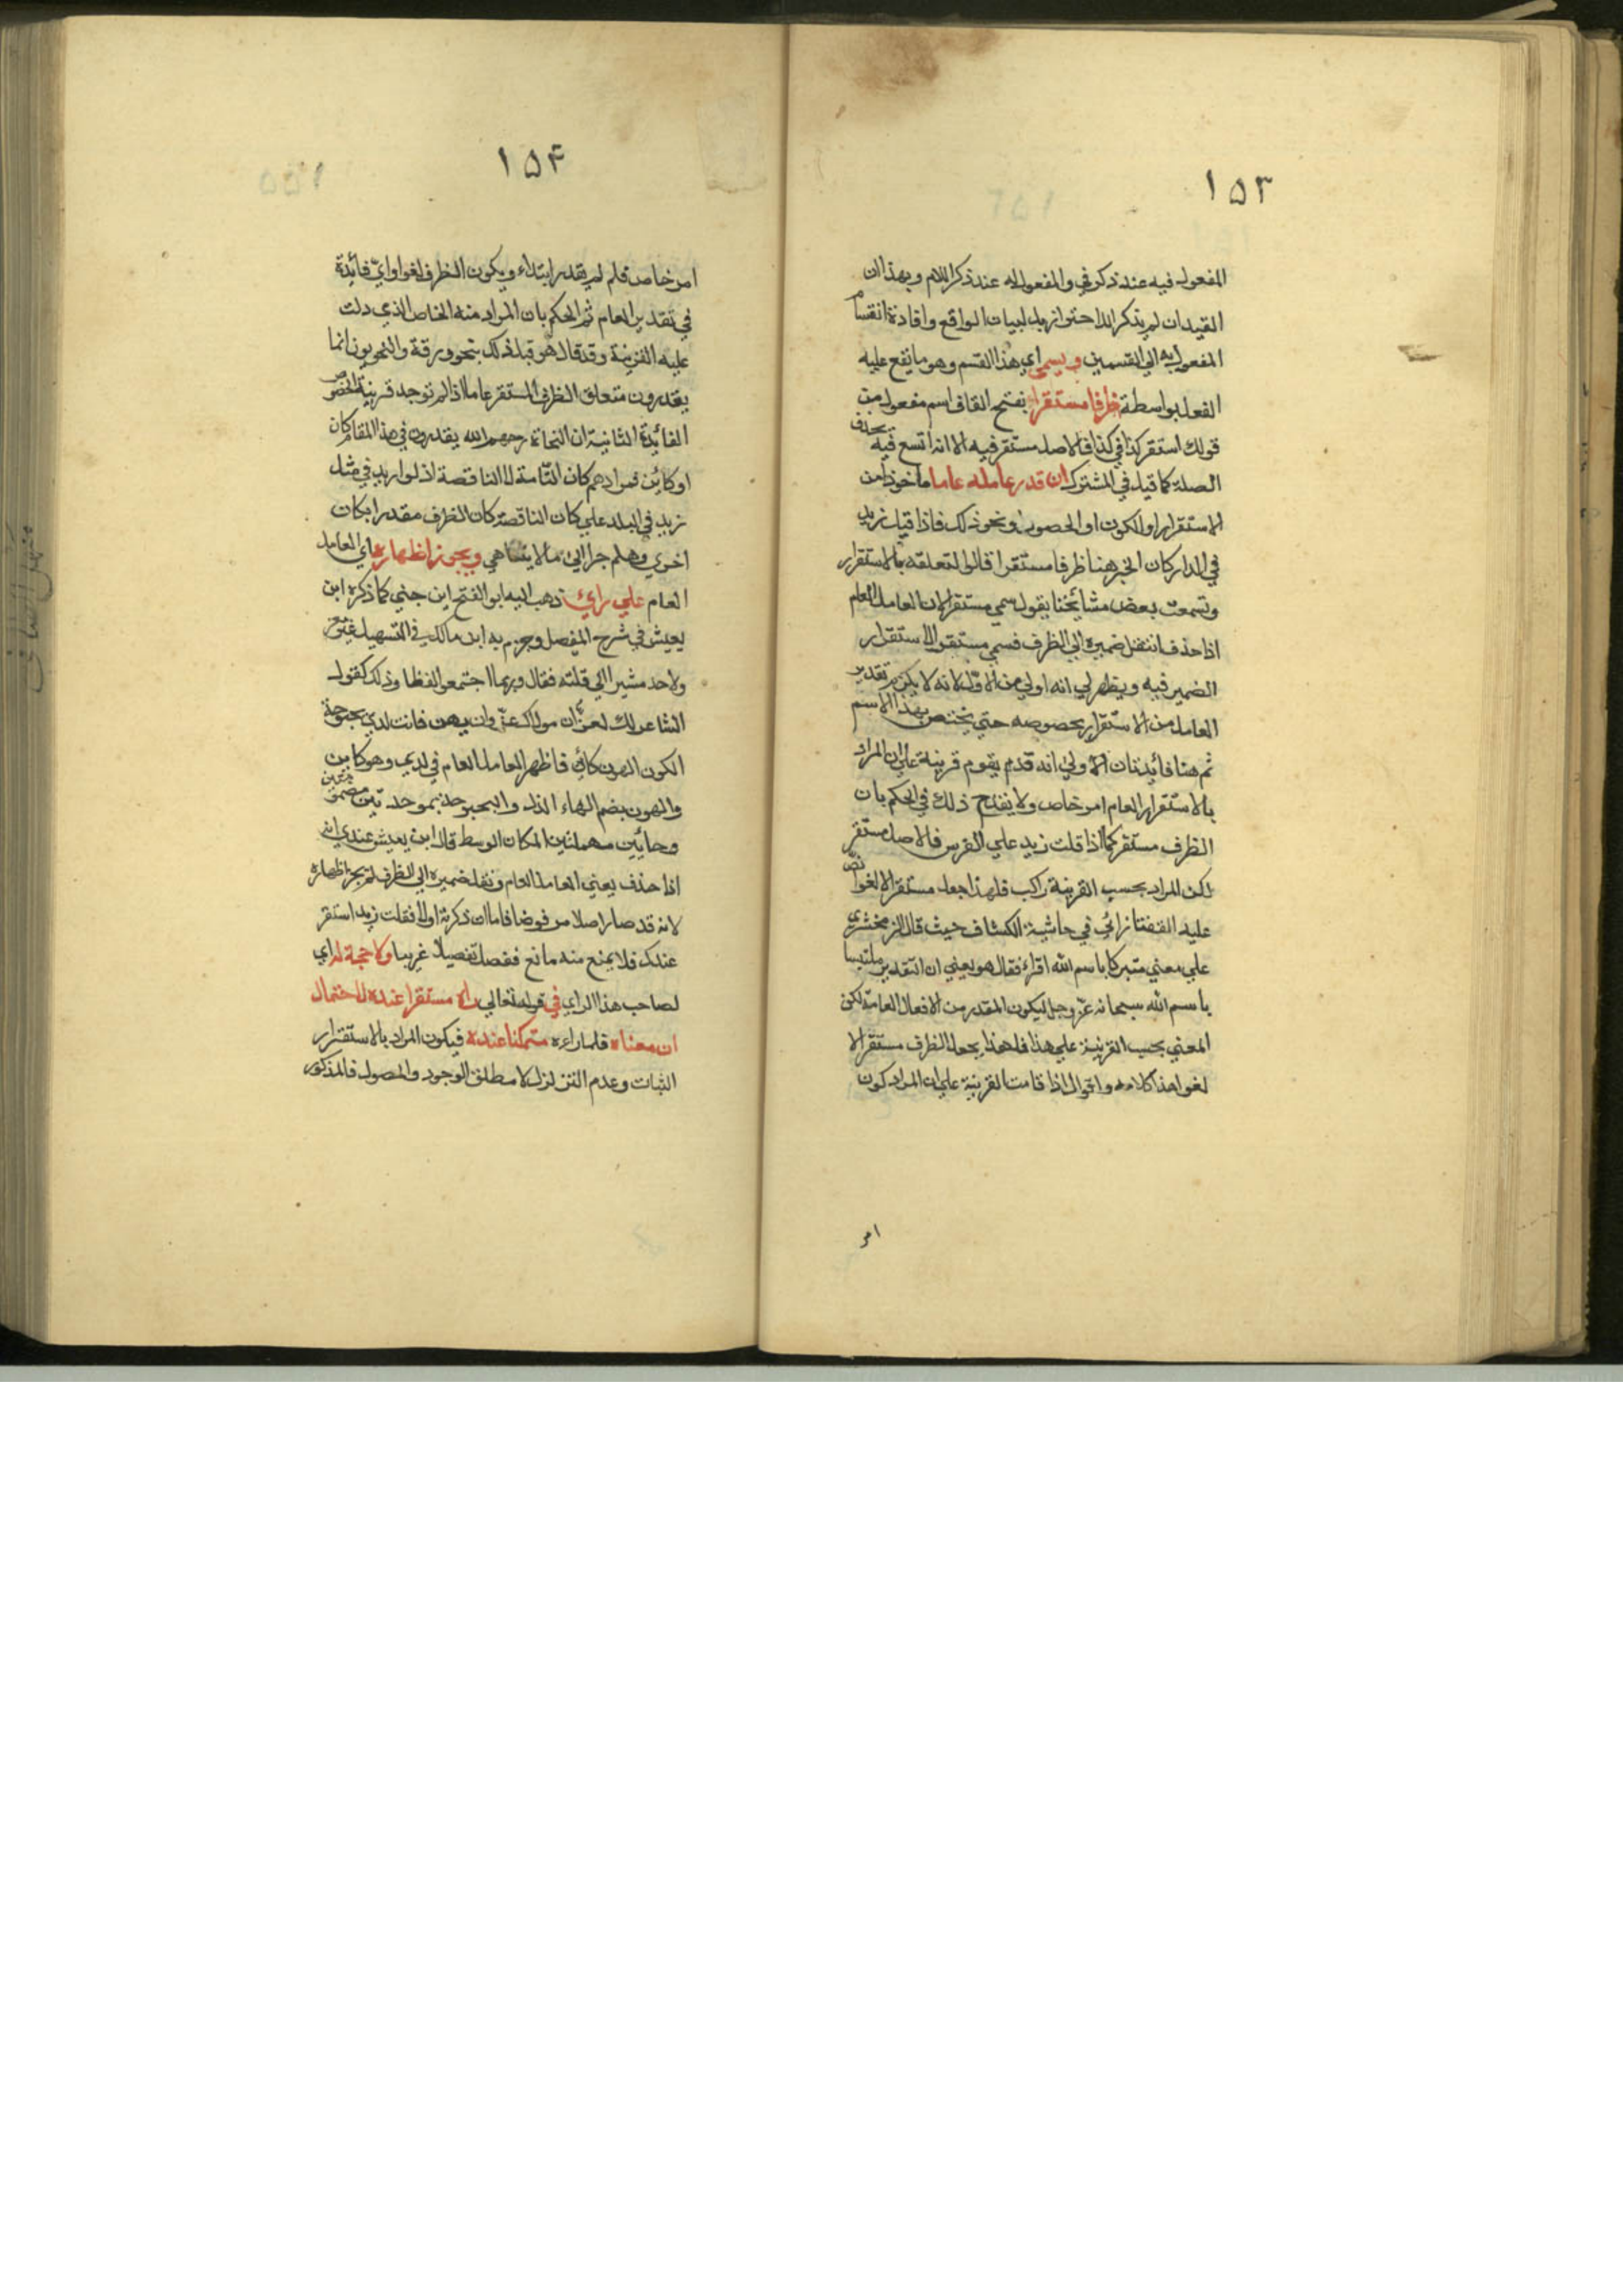 ١٥٣
المفعول فيه عند ذكر في والمفعول له عند ذكر اللام وبهذا ان
القيدان لم يذكرا للاحتراز بل لبيان الواقع وافادة انقسام
المفعول به الي القسمين ويسمي اي هذا القسم وهو ما يقع عليه
الفعل بواسطة ظرفا مستقرا بفتح القاف اسم مفعول من
قولك استقر كذا في كذا فالاصل مستقر فيه الا انه اتسع فيه بحذف
الصلة كما قيل في المشترك ان قدر عامله عاما ماخوذا من
الاستقرار او الكون او الحصول ونحو ذلك فاذا قيل زيد
في الدار كان الخبر هنا ظرفا مستقرا قالوا لتعلقه بالاستقرار
وسمعت بعض مشائخنا يقول سمي مستقرا لان العامل العام
اذا حذف انتقل ضميره الي الظرف فسمي مستقرا لاستقرار
الضمير فيه ويظهر لي انه اولي من الاول لانه لا يكون تقدير
العامل من الاستقرار بخصوصه حتي يختص بهذا الاسم
ثم هنا فائدتان الاولي انه قد يقوم قرينة علي ان المراد
بالاستقرار العام امر خاص ولا يقدح ذلك في الحكم بان
الظرف مستقر كما اذا قلت زيد علي الفرس فالاصل مستقر
لكن المراد بحسب القرينة راكب فلهذا جعل مستقرا لا لغوا نص
عليه التفتازاني في حاشية الكشاف حيث قال الزمخشري
علي معني متبركا باسم الله اقراء فقال هو يعني ان التقدير ملتبسا
باسم الله سبحانه عز وجل ليكون المقدر من الافعال العامة لكن
المعني بحسب القرينة علي هذا فلهذا يجعل الظرف مستقرا لا
لغوا هذا كلامه واقول اذا قامت القرينة علي ان المراد كون
امر
١٥٤
امر خاص فلم لم يقدر ابتداء ويكون الظرف لغوا واي فائدة
في تقدير العام ثم الحكم بان المراد منه الخاص الذي دلت
عليه القرينة وقد قال هو قبل ذلك بنحو ورقة والنحويون انما
يقدرون متعلق الظرف المستقر عاما اذا لم توجد قرينة الخصوص
الفائدة الثانية ان النحاة رحمهم الله يقدرون في هذا المقام كان
او كائن فمرادهم كان التامة لا الناقصة اذ لو اريد في مثل
زيد في البلد علي كان الناقصة كان الظرف مقدرا بكان
اخري وهلم جرا الي ما لا يتناهي ويجوز اظهاره اي العامل
العام علي راي ذهب اليه ابو الفتح ابن جني كما ذكره ابن
يعيش في شرح المفصل وجزم به ابن مالك في التسهيل
ولاحد مشيرا الي قلته فقال وربما اجتمعوا لفظا وذلك كقول
الشاعر لك لعز ان مولاك عز وان يهن فانت لدي بحبوحة
الكون الهون كائن فاظهر العامل العام في لدي وهو كاين
والهون بضم الهاء الذل والبحبوحة بموحدتين مضمومتين
وحائين مهملتين المكان الوسط قال ابن يعيش عندي انه
اذا حذف يعني العامل العام ونقل ضميره الي الظرف لم يجز اظهاره
لانه قد صار اصلا مرفوضا فاما ان ذكرته اولا فقلت زيد استقر
عندك فلا يمنع منه مانع ففصل تفصيلا غريبا ولا حجة له اي
لصاحب هذا الراي في قوله تعالي راه مستقرا عنده لاحتمال
ان معناه فلما راءه متمكنا عنده فيكون المراد بالاستقرار
الثبات وعدم التزلزل لا مطلق الوجود والحصول فالمذكور